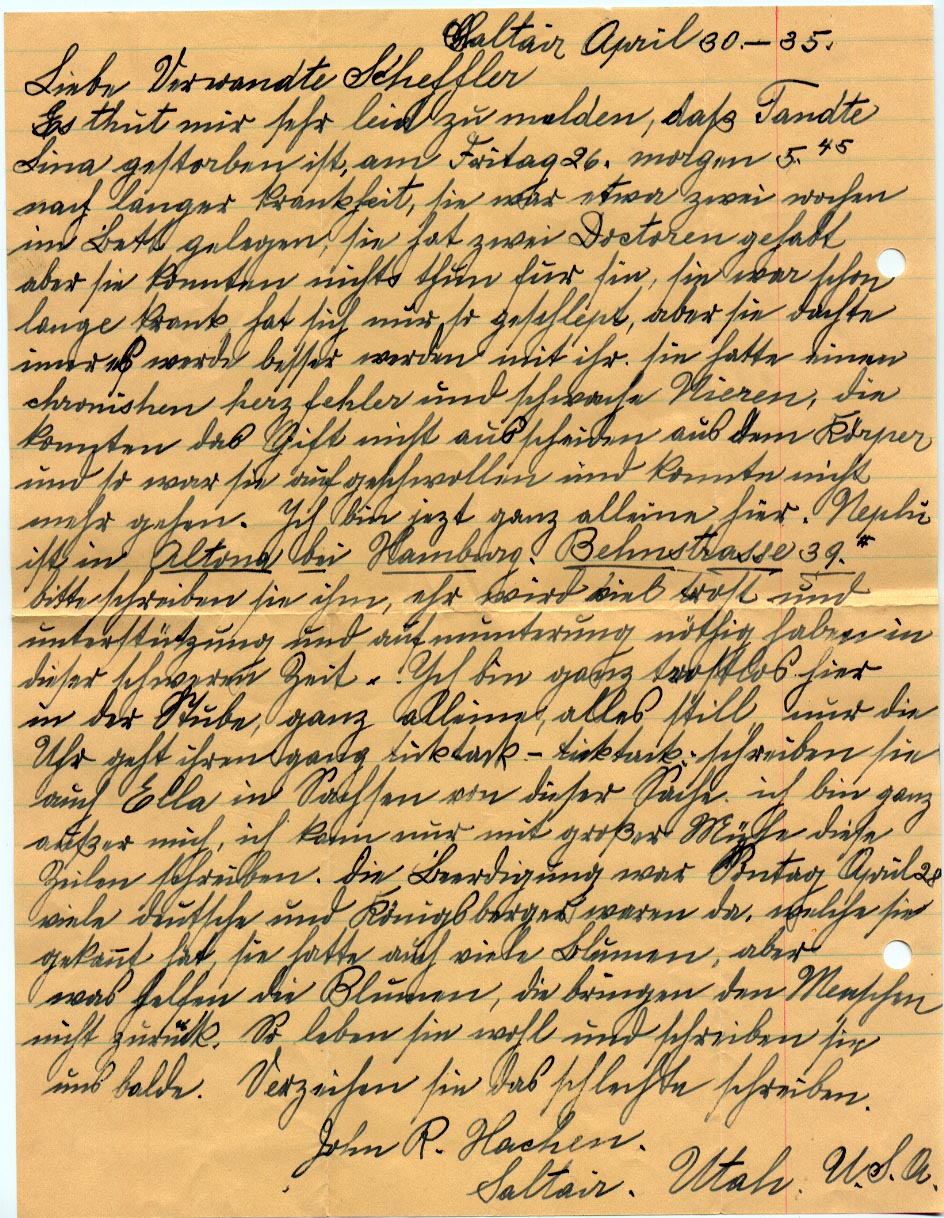 Saltair April 30.–35.
Liebe Verwandte Scheffler
Es thut mir sehr leid zu melden, daß Tandte
Lina gestorben ist, am Fritag 26. morgen 5.45
nach langer Krankheit, sie war etwa zwei wochen
im Bett gelegen, sie hat zwei Doctoren gehabt
aber sie konnten nichts thun für sie, sie war schon
lange krank, hat sich nur so geschlept, aber sie dachte
imer es werde besser werden mit ihr. sie hatte einen
chronishen herzfehler und schwache Nieren, die
konnten das Gift nicht ausscheiden aus dem Körper
und so war sie aufgeschwollen und konnte nicht
mehr gehen. Ich bin jezt ganz alleine hier. Nephi
ist in Altona bei Hamburg. Behnstrasse 39.
bitte schreiben sie ihm, ehr wird viel trost und
unterstützung und aufmunterung nöthig haben in
dieser schweren Zeit. Ich bin ganz trostlos hier
in der Stube, ganz alleine, alles still, nur die
Uhr geht ihren gang ticktack – ticktack. schreiben sie
auch Ella in Sachsen von dieser Sache. ich bin ganz
außer mich, ich kann nur mit großer Mühe diese
Zeilen schreiben. die Beerdigung war Sontag April 28
viele deutsche und Königsberger waren da, welche sie
gekannt hat, sie hatte auch viele Blumen, aber
was helfen die Blumen, die bringen den Menschen
nicht zurück. So leben sie wohl und schreiben sie
uns balde. Verzeihen sie das schlechte schreiben.
John R. Hachen.
Saltair. Utah. U.S.A.